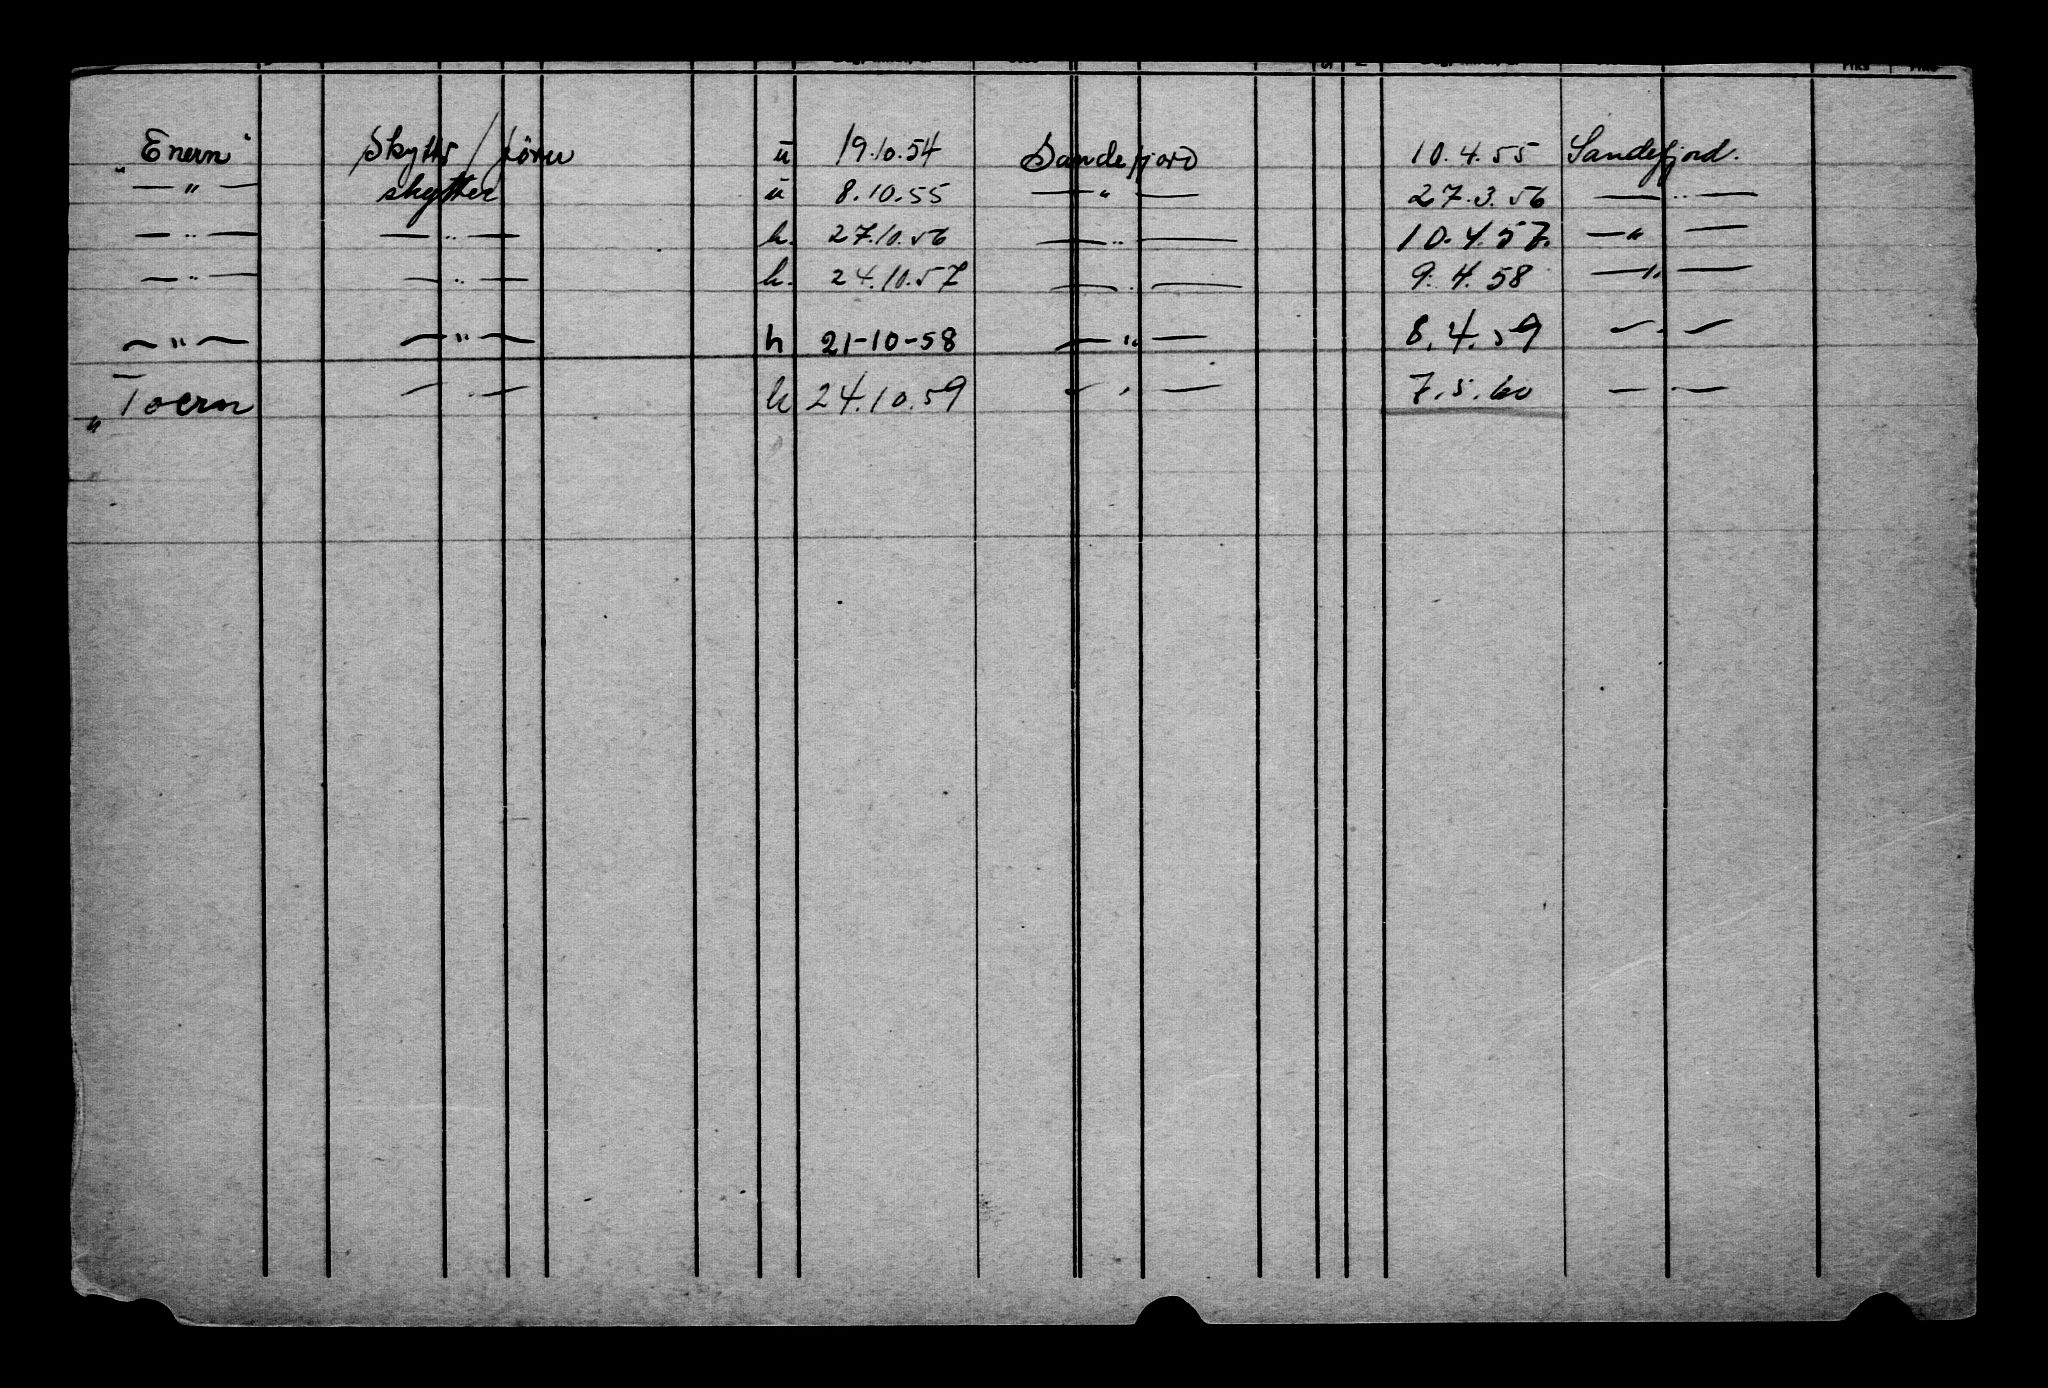 "Enern" Skytter/fører u 19.10.54 Sandefjord 10.4.55 Sandefjord.
— " — skytter u 8.10.55 — " — 27.3.56 — " —
— " — — " — h. 27.10.56 — " — 10.4.57. — " —
— " — — " — h. 24.10.57 — " — 9.4.58 — " —
— " — — " — h 21-10-58 — " — 8.4.59 — " —
"Toern — " — h 24.10.59 — " — 7.5.60 — " —